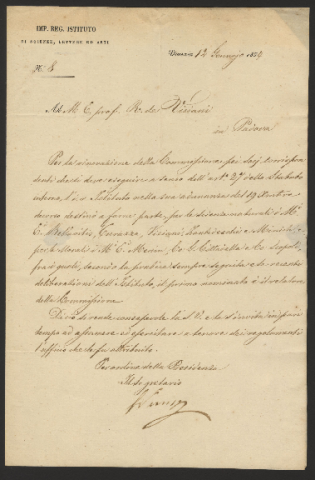 IMP. REG. ISTITUTO
DI SCIENZE, LETTERE ED ARTI
Venezia 12 Gennajo
N.º 8
Al M. E. prof. R. de Visiani
in Padova
Per la rinnovazione della Commissione
denti che si deve eseguire a senso dell' art. 27 dello Statuto
interno, l'i. r. Istituto nella sua adunanza del 19
decorso destinò a farne parte, per le scienze naturali i M.
E. Visiani, Zantedeschi e
pre i M. E. Menin, Co. A. Cittadella e
fra i quali, secondo la pratica sempre seguita e la recente
deliberazione dell' Istituto, il primo nominato è il relatore
della Commissione.
Di ciò si rende consapevole la S. V. e la s'invita in pari
tempo ad assumere, esercitare e tenere dei regolamenti
l'uffizio che le fu attribuito.
Per ordine della Presidenza
Il Segretario